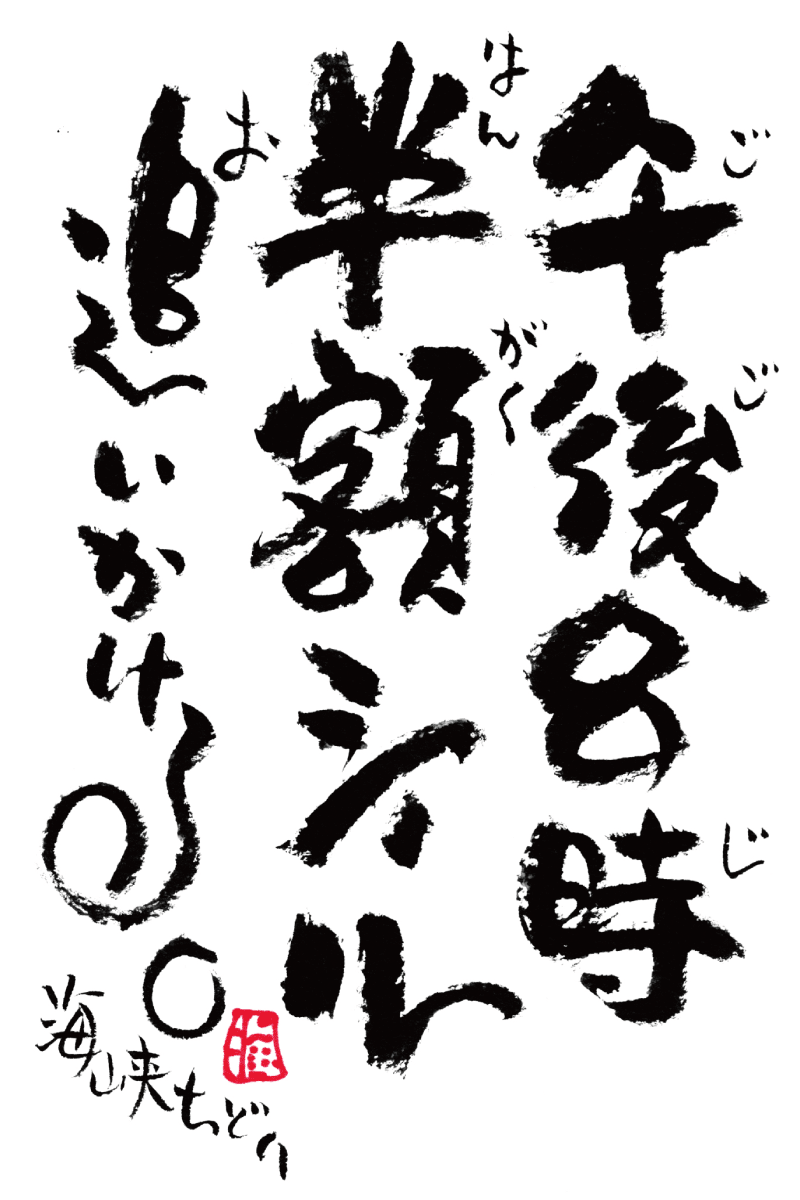 午後8時
ごごじ
半額シール
はんがく
追いかける。
お
海峡ちどり